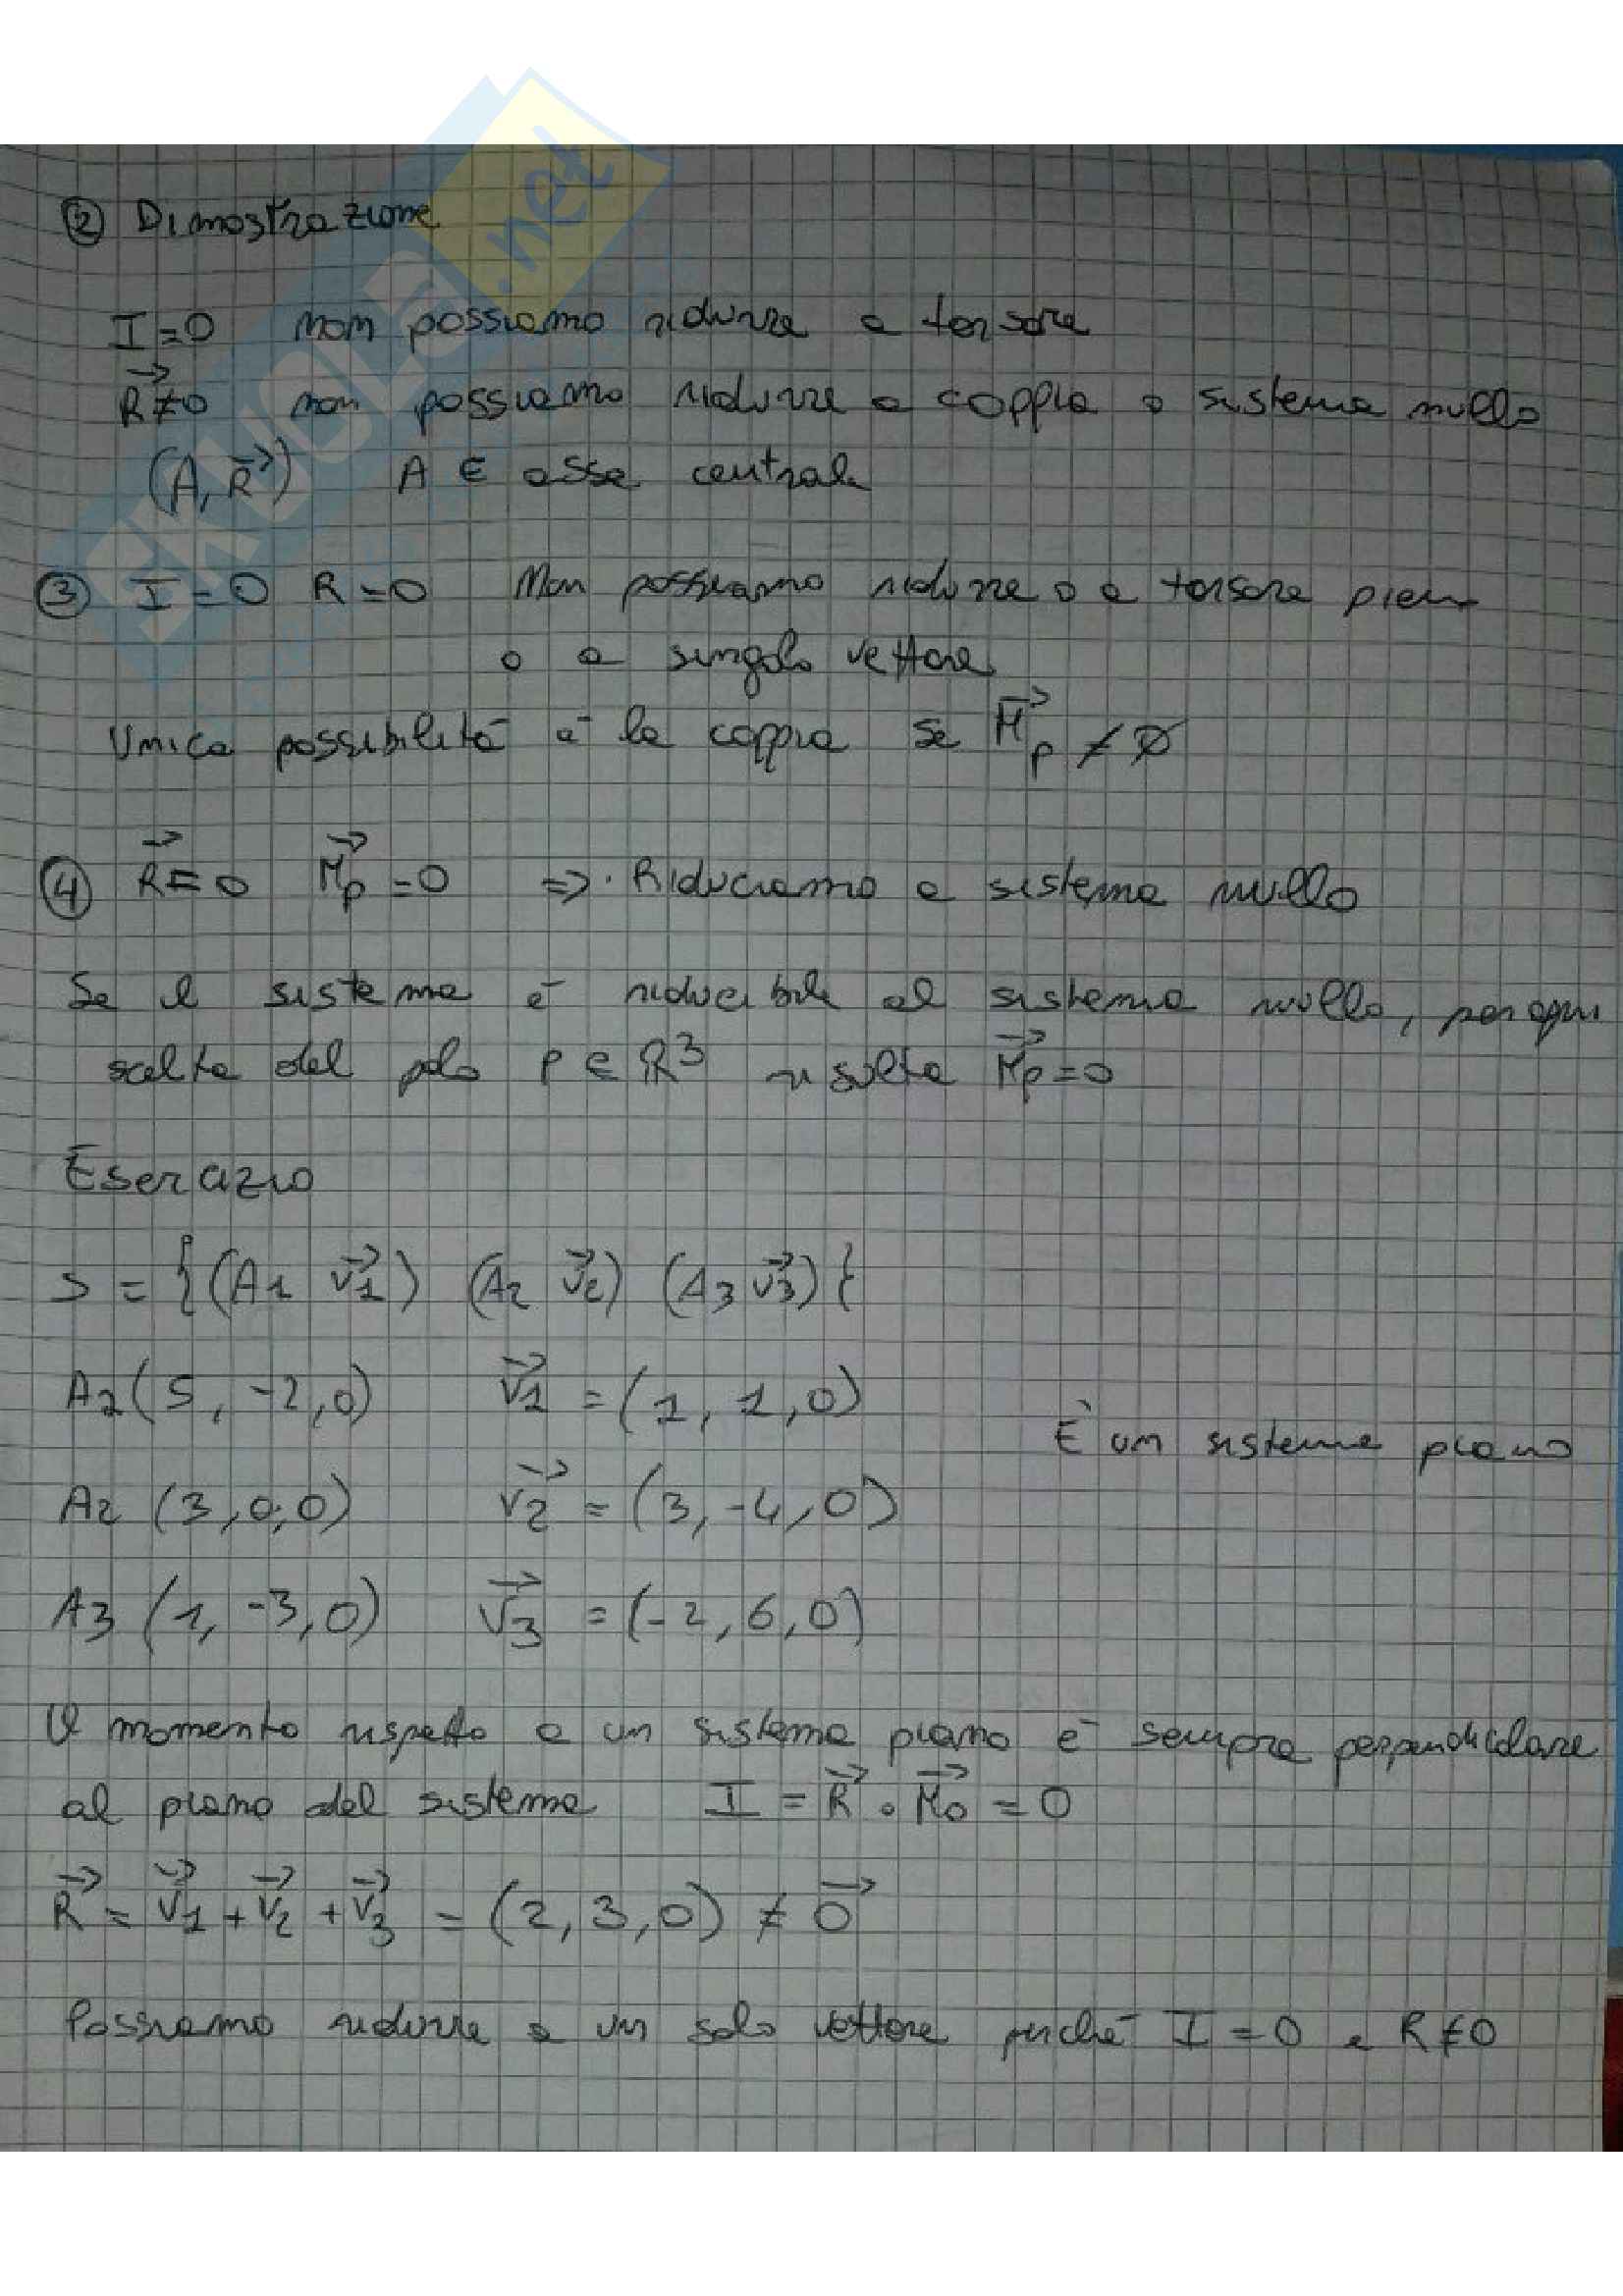 ② Dimostrazione
I=0 non possiamo ridurre a torsore
R⃗≠0 non possiamo ridurre a coppia o sistema nullo
(A, R⃗) A ∈ asse centrale
③ I=0 R=0 Non possiamo ridurre o a torsore pieno
o a singolo vettore
Unica possibilità è la coppia se M⃗p ≠ 0
④ R⃗=0 M⃗p=0 => Riduciamo a sistema nullo
Se il sistema è riducibile al sistema nullo, per ogni
scelta del polo P ∈ R³ risulta M⃗p=0
Esercizio
S = {(A1 v⃗1) (A2 v⃗2) (A3 v⃗3)}
A1(5, -2, 0) v⃗1 = (1, 1, 0)
È un sistema piano
A2 (3, 0, 0) v⃗2 = (3, -4, 0)
A3 (1, -3, 0) v⃗3 = (-2, 6, 0)
Il momento rispetto a un sistema piano è sempre perpendicolare
al piano del sistema I = R⃗ · M⃗o = 0
R⃗ = v⃗1 + v⃗2 + v⃗3 = (2, 3, 0) ≠ 0⃗
Possiamo ridurre a un solo vettore perché I = 0 e R≠0
SKUOLA.net